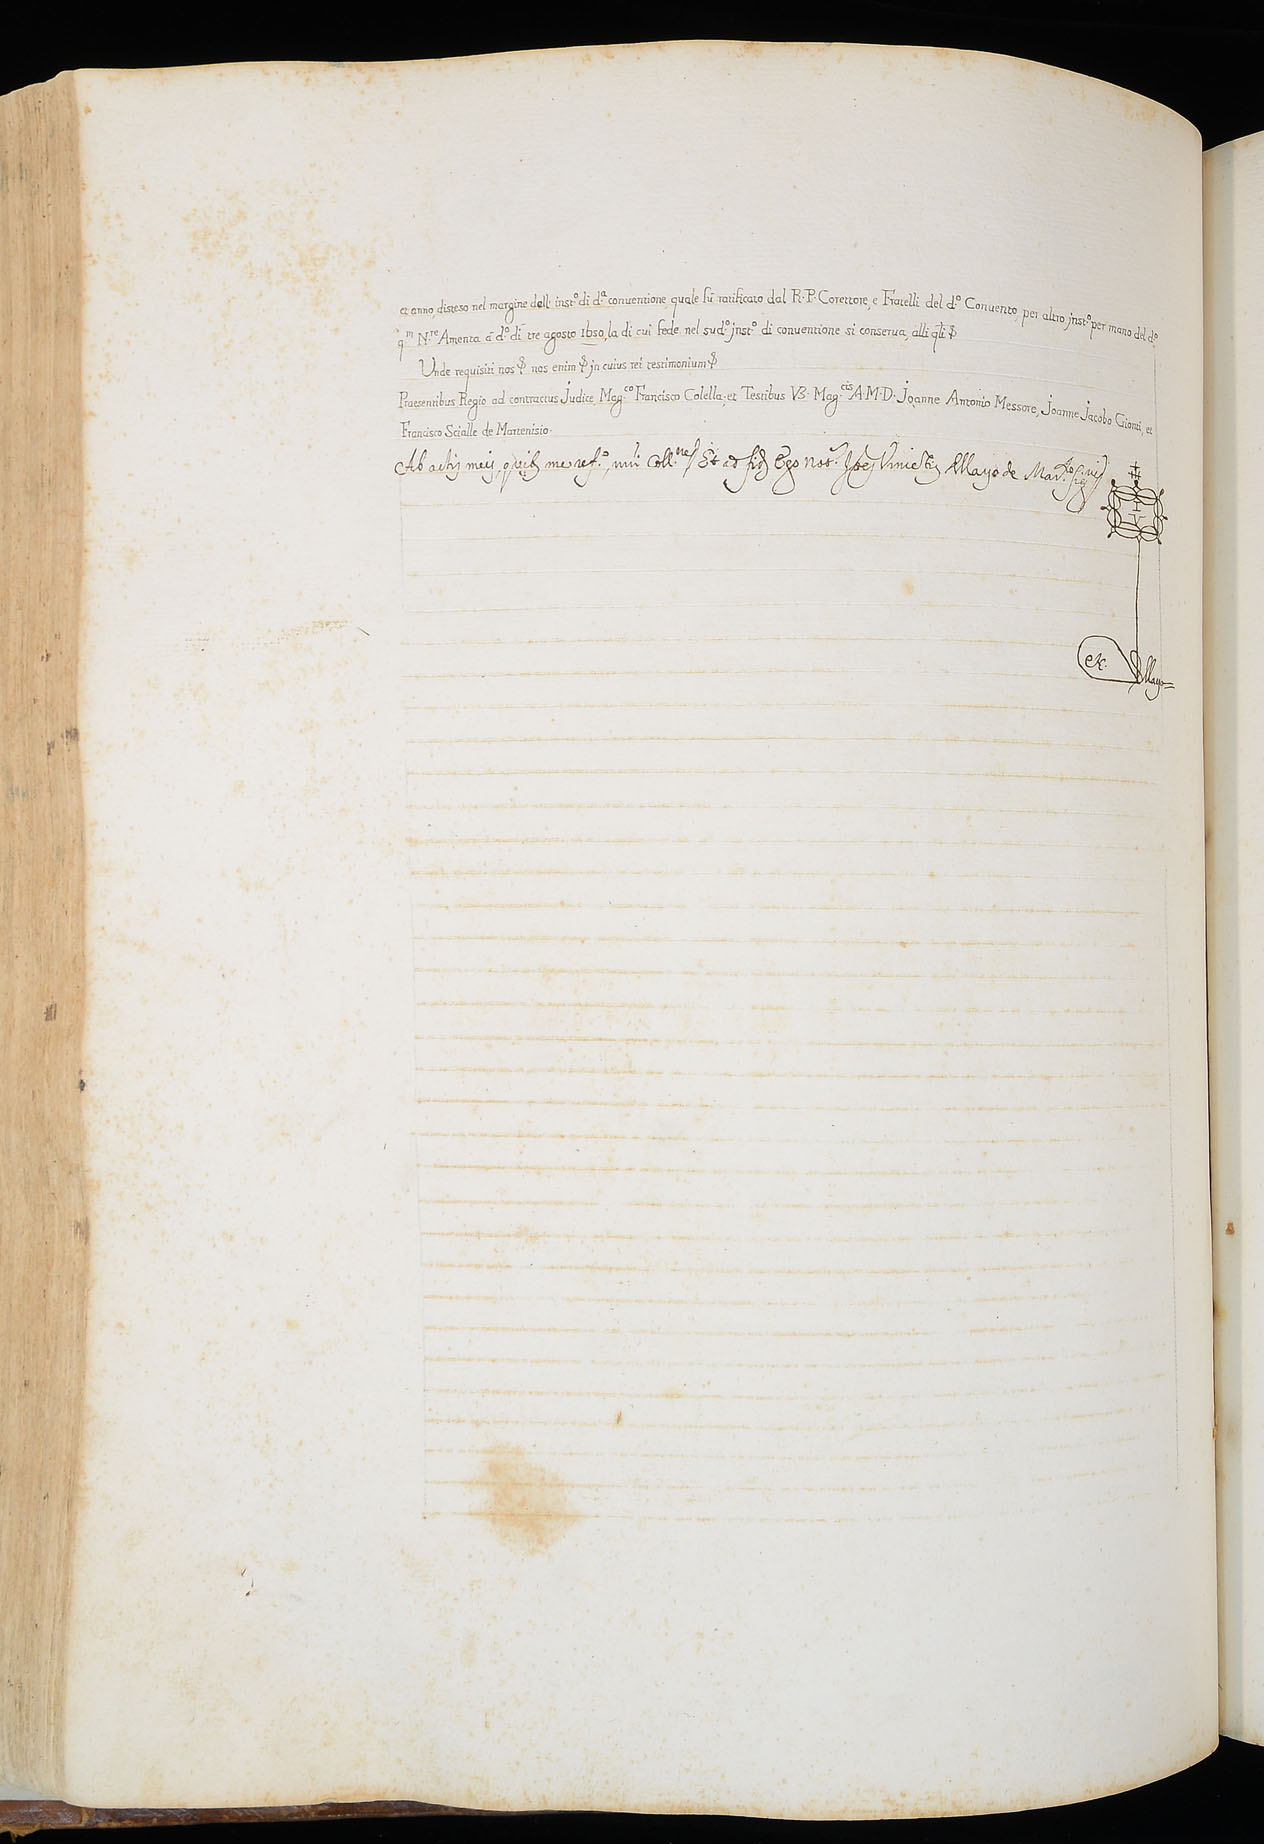 et anno, disteso nel margine dell' inst.º di d.ª conuentione, quale fù ratificato dal R. P. Corettore, e Fratelli del d.º Conuento, per altro jnst.º per mano del d.º
q.m N.re Amenta à d.º dì tre agosto 1650, la di cui fede nel sud.º jnst.º di conuentione si conserua, alli qli &
Unde requisiti nos & nos enim & jn cuius rei testimonium &
Praesentibus Regio ad contractus Judice, Mag.co Francisco Colella, et Testibus V3. Mag.cis A.M.D. Joanne Antonio Messore, Joanne Jacobo Gionti, et
Francisco Scialle de Martenisio.
Ab actis meis, me ref.º Et ad fid Ego Not.r Mayo de
&c. Mayo